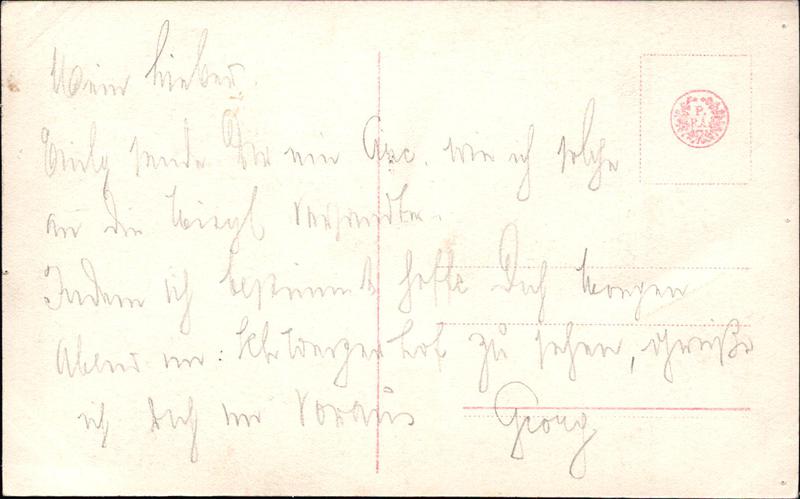 Mein lieber
P.
sende Dir ein wie ich solche
an die versandte.
Indem ich bestimmt hoffe Dich morgen
Abend im: zu sehen, grüße
ich Dich im Voraus Georg